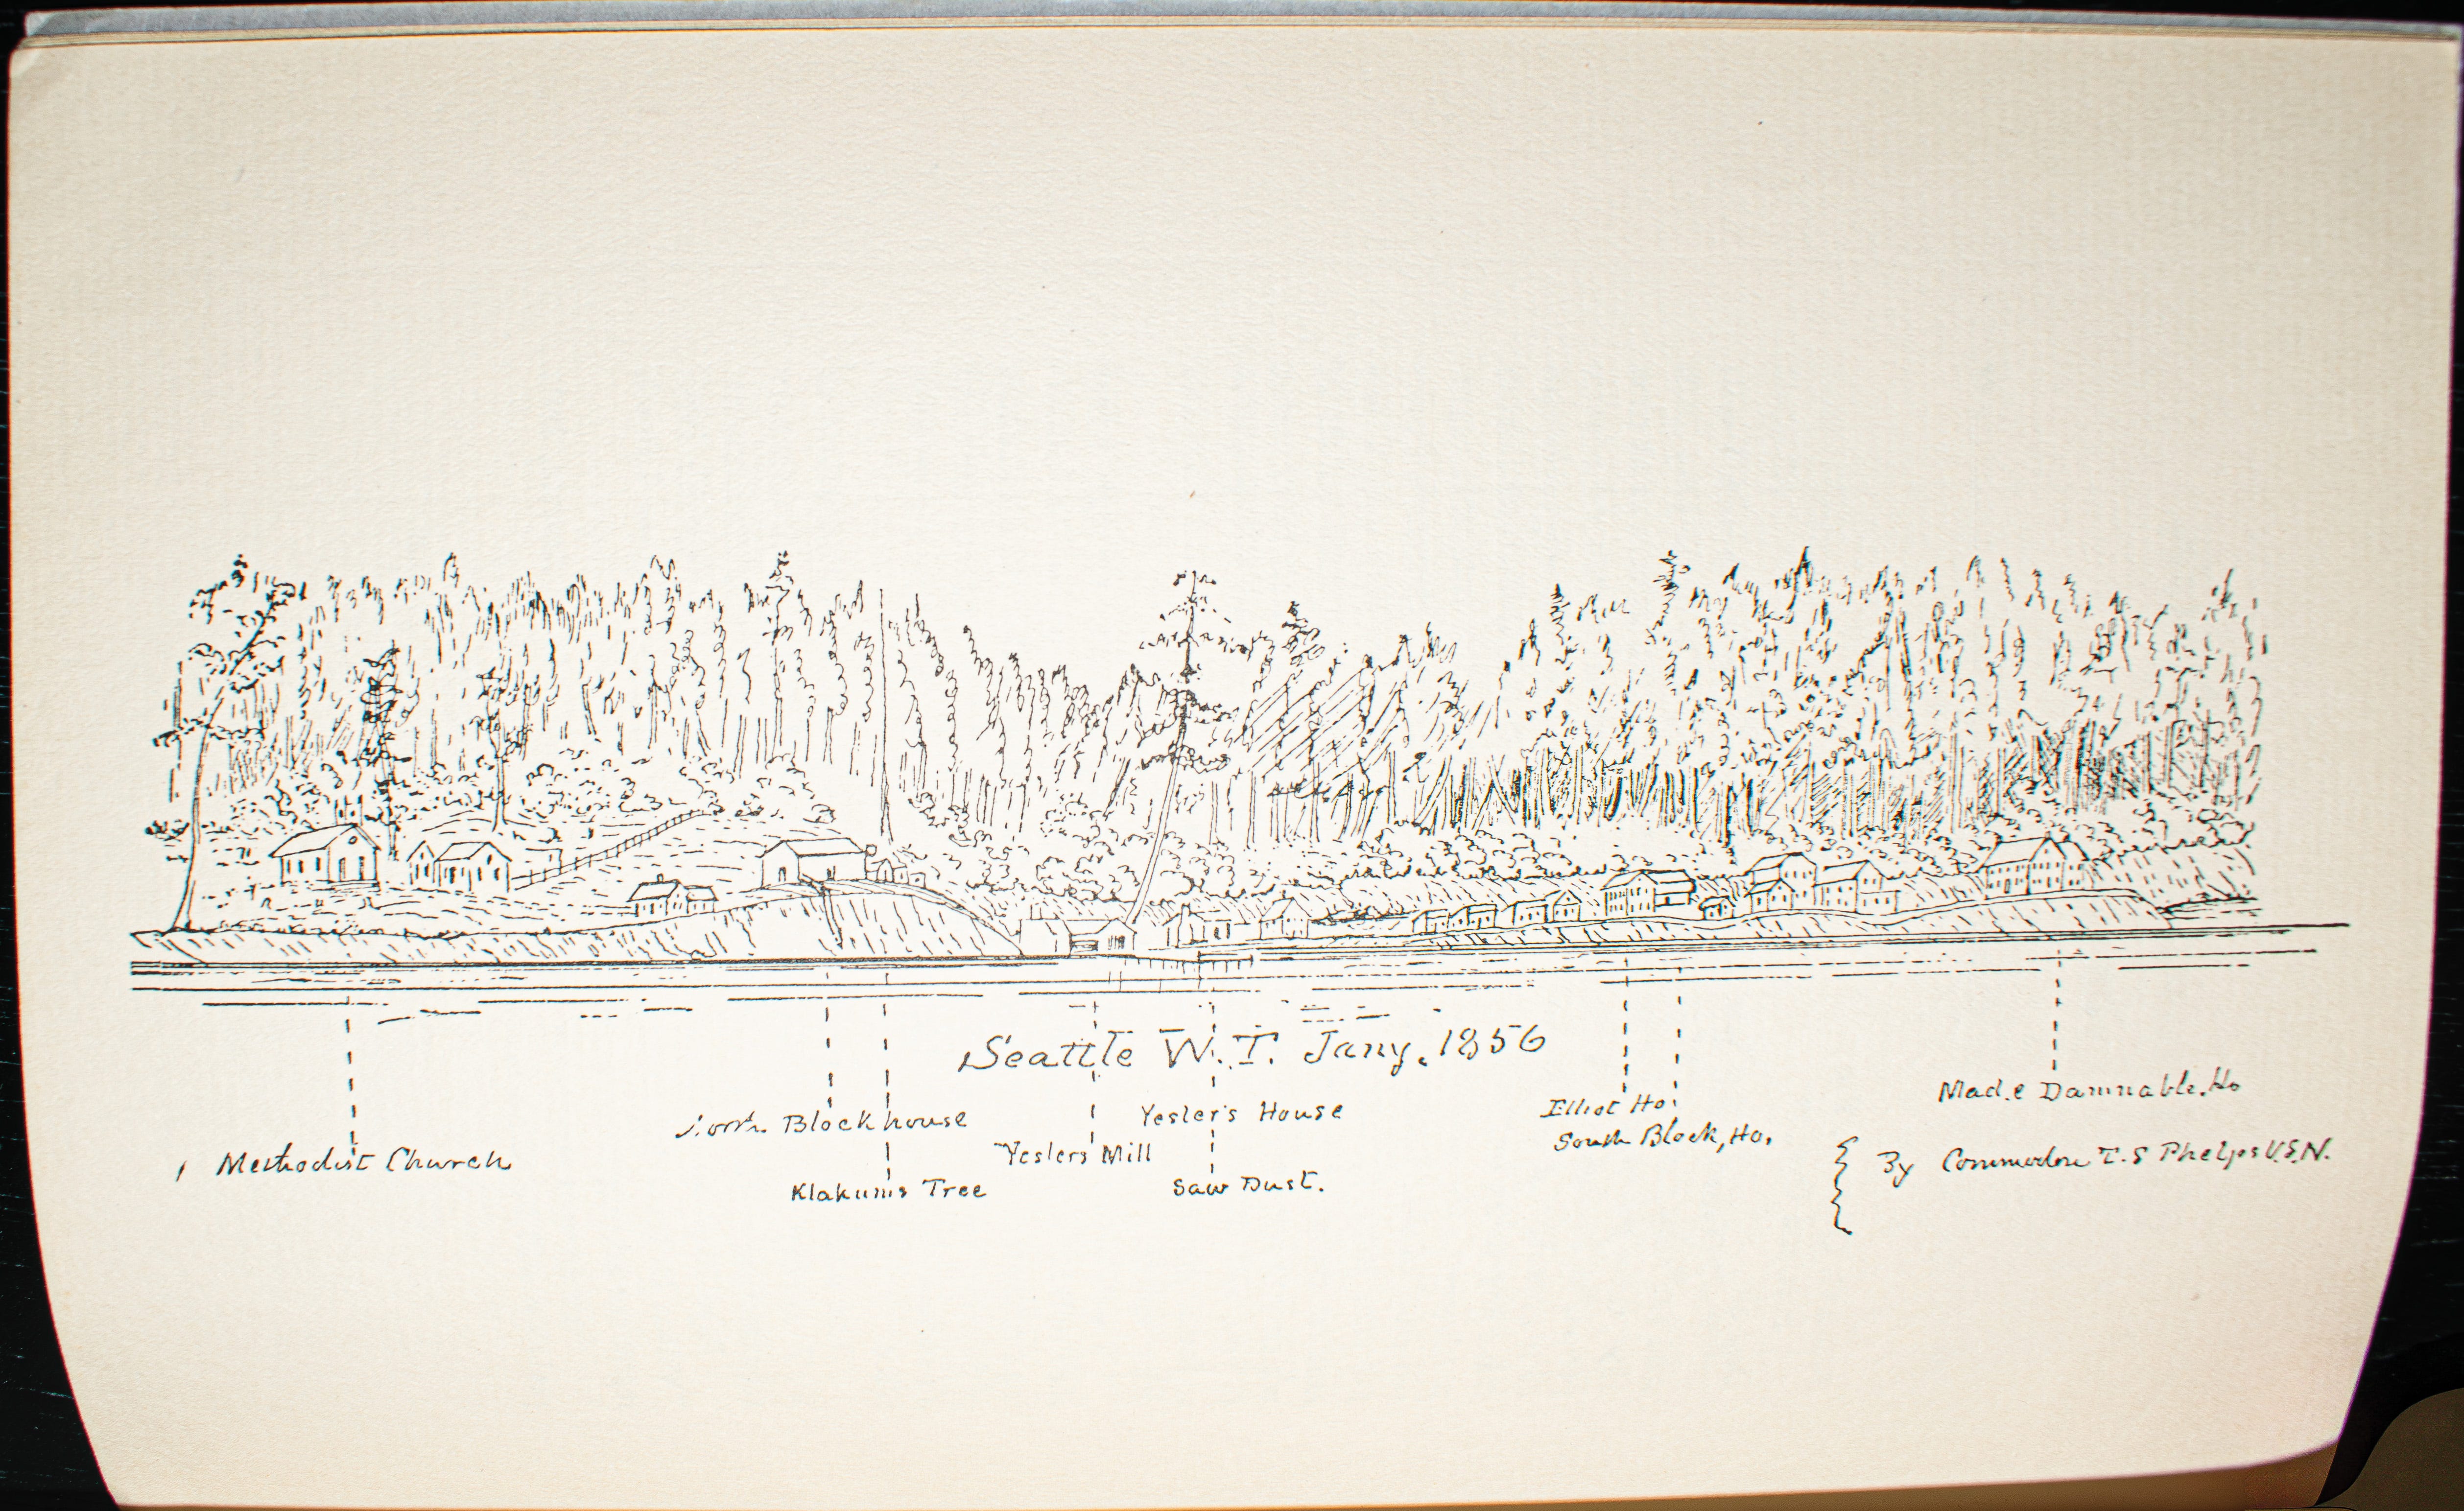 Seattle W.T. Jany. 1856
Mad.e Damnable. Ho
Elliot Ho.
North Blockhouse
Yesler's House
South Block, Ho.
Methodist Church
Yeslers Mill
By Commodore T. S Phelps U.S.N.
Klakums Tree
Saw Dust.